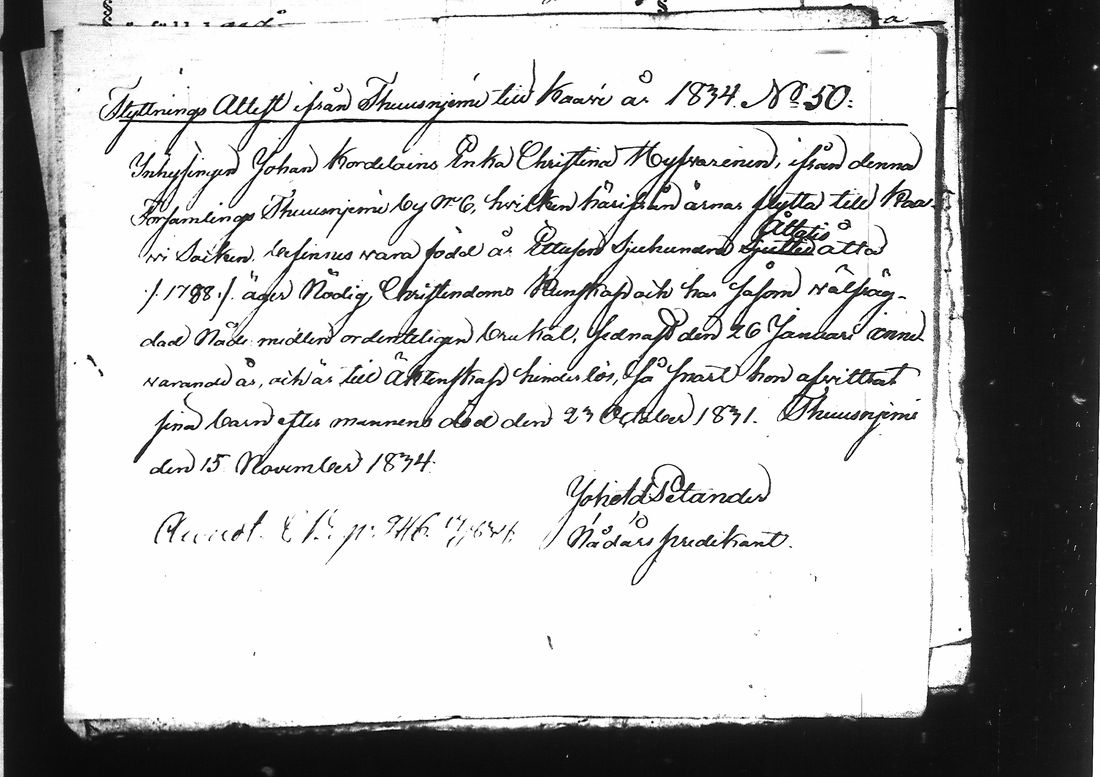 Flyttnings Attest ifrån Thuusnjemi till Kaavi år 1834. No 50:
Inhysingen Johan Kordelains Enka Christina Hyfvärinen, ifrån denna
Församlings Thuusnjemi by No 6, hvilken härifrån ärnar flytta till Kaa-
vi Socken, befinnes vara född år Ettusen Sjuhundra Åttatio åtta
/: 1788 :/ äger Nödig Christendoms Kunskap och har såsom välfräg-
dad Nåde medlen ordenteligen brukat, sednast den 26 Januari inne-
varande år, och är till Äktenskap hinderlös, så snart hon afvittrat
sina barn efter mannens död den 23 October 1831. Thuusnjemi
den 15 November 1834.
Selander
Annot. p. 946
Nådårs predikant.